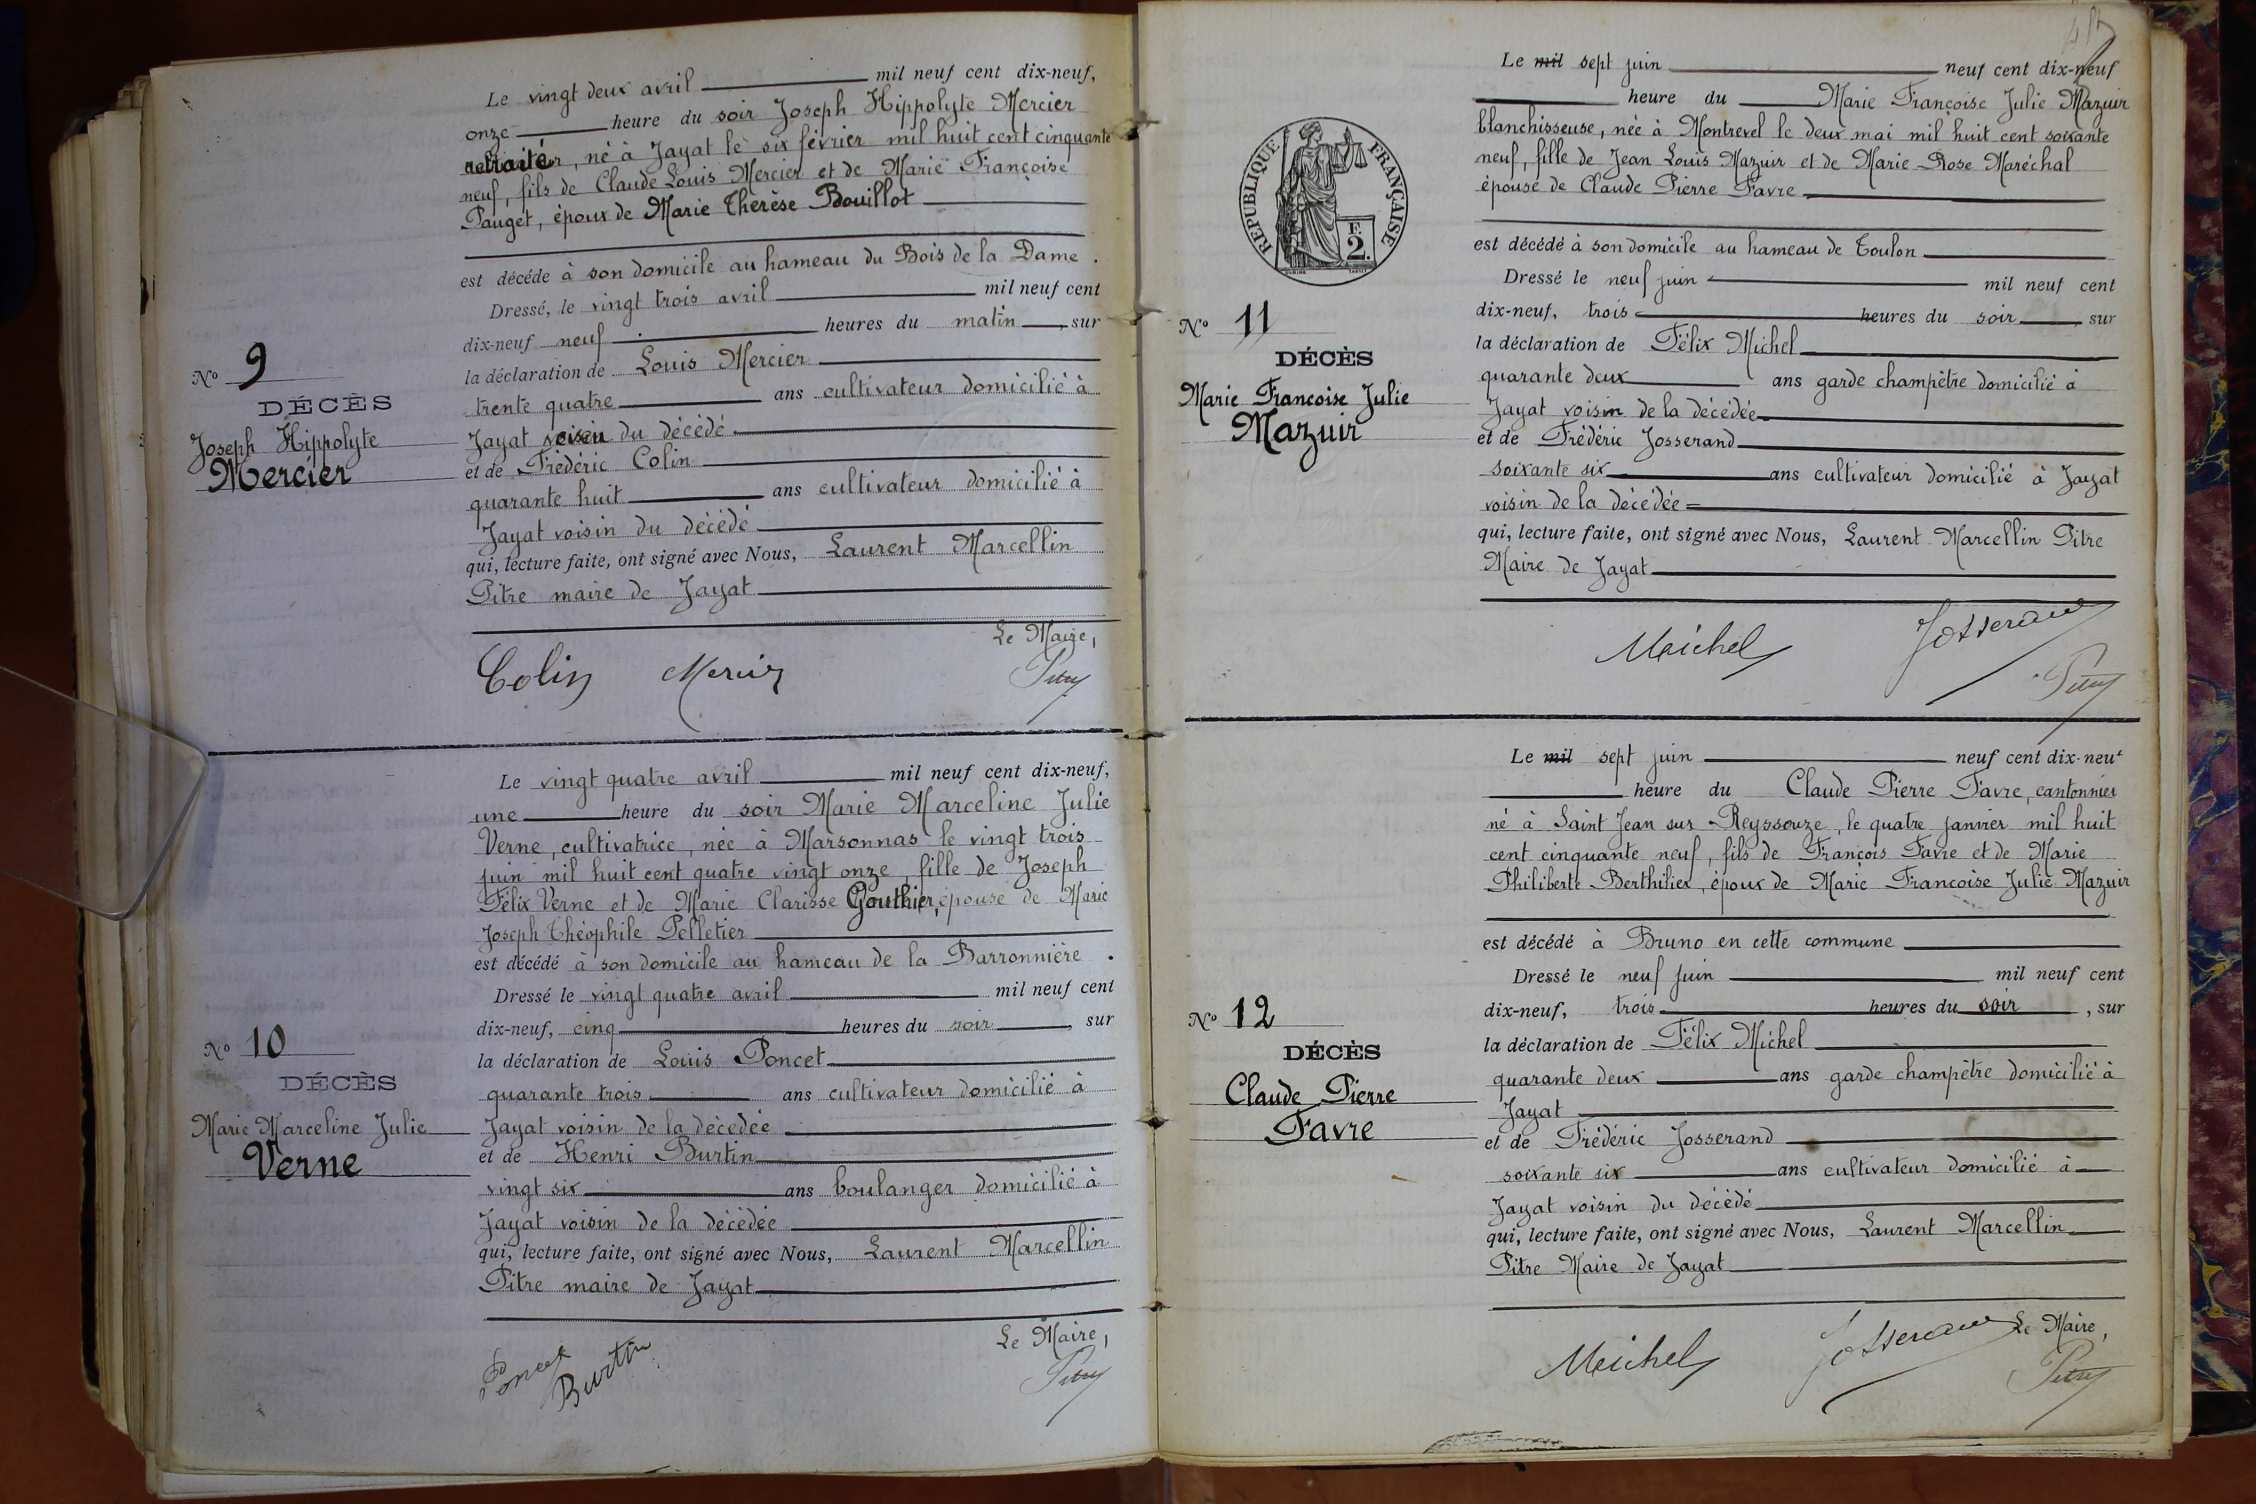 Le vingt deux avril mil neuf cent dix-neuf,
onze heure du soir Joseph Hippolyte Mercier
retraité, né à Jayat le six février mil huit cent cinquante
neuf, fils de Claude Louis Mercier et de Marie Françoise
Pauget, époux de Marie Thérèse Bouillot
est décédé à son domicile au hameau du Bois de la Dame.
Dressé, le vingt trois avril mil neuf cent
dix-neuf neuf heures du matin, sur
la déclaration de Louis Mercier
trente quatre ans cultivateur domicilié à
Jayat voisin du décédé
et de Frédéric Colin
quarante huit ans cultivateur domicilié à
Jayat voisin du décédé
qui, lecture faite, ont signé avec Nous, Laurent Marcellin
Pitre maire de Jayat
Le Maire,
Colin Mercier Pitre
No 9
DÉCÈS
Joseph Hippolyte
Mercier
Le vingt quatre avril mil neuf cent dix-neuf,
une heure du soir Marie Marceline Julie
Verne, cultivatrice, née à Marsonnas le vingt trois
juin mil huit cent quatre vingt onze, fille de Joseph
Félix Verne et de Marie Clarisse Gouthier, épouse de Marie
Joseph Théophile Pelletier
est décédé à son domicile au hameau de la Barronnière.
Dressé le vingt quatre avril mil neuf cent
dix-neuf, cinq heures du soir, sur
la déclaration de Louis Poncet
quarante trois ans cultivateur domicilié à
Jayat voisin de la décédée
et de Henri Burtin
vingt six ans boulanger domicilié à
Jayat voisin de la décédée
qui, lecture faite, ont signé avec Nous, Laurent Marcellin
Pitre maire de Jayat
Le Maire,
Poncet Burtin Pitre
No 10
DÉCÈS
Marie Marceline Julie
Verne
Le mil sept juin neuf cent dix-neuf
heure du Marie Françoise Julie Mazuir
blanchisseuse, née à Montrevel le deux mai mil huit cent soixante
neuf, fille de Jean Louis Mazuir et de Marie Rose Maréchal
épouse de Claude Pierre Favre
est décédé à son domicile au hameau de Toulon
Dressé le neuf juin mil neuf cent
dix-neuf, trois heures du soir, sur
la déclaration de Félix Michel
quarante deux ans garde champêtre domicilié à
Jayat voisin de la décédée
et de Frédéric Josserand
soixante six ans cultivateur domicilié à Jayat
voisin de la décédée =
qui, lecture faite, ont signé avec Nous, Laurent Marcellin Pitre
Maire de Jayat
Michel Josserand
Pitre
REPUBLIQUE FRANÇAISE
F.
2.
No 11
DÉCÈS
Marie Francoise Julie
Mazuir
Le mil sept juin neuf cent dix-neuf
heure du Claude Pierre Favre, cantonnier
né à Saint Jean sur Reyssouze, le quatre janvier mil huit
cent cinquante neuf, fils de François Favre et de Marie
Philiberte Berthilier, époux de Marie Francoise Julie Mazuir
est décédé à Bruno en cette commune
Dressé le neuf juin mil neuf cent
dix-neuf, trois heures du soir, sur
la déclaration de Félix Michel
quarante deux ans garde champêtre domicilié à
Jayat
et de Frédéric Josserand
soixante six ans cultivateur domicilié à
Jayat voisin du décédé
qui, lecture faite, ont signé avec Nous, Laurent Marcellin
Pitre Maire de Jayat
Le Maire,
Michel Josserand Pitre
No 12
DÉCÈS
Claude Pierre
Favre